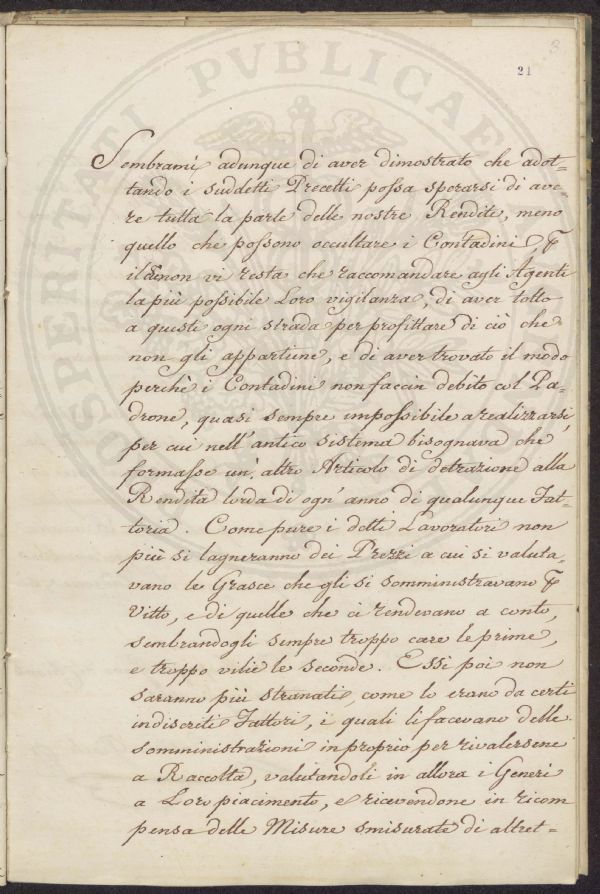 3
21
Sembrami adunque di aver dimostrato che adot-
tando i suddetti Precetti possa sperarsi di ave-
re tutta la parte delle nostre Rendite, meno
quello che possono occultare i Contadini, &
il che non vi resta che raccomandare agli Agenti
la più possibile Loro vigilanza, di aver tolto
a questi ogni strada per profittare di ciò che
non gli appartiene, e di aver trovato il modo
perchè i Contadini non faccin debito col Pa-
drone, quasi sempre impossibile a realizzarsi,
per cui nell'antico sistema bisognava che
formasse un'altro Articolo di detrazione alla
Rendita lorda di ogn'anno di qualunque Fat-
toria. Come pure i detti Lavoratori non
più si lagneranno dei Prezzi a cui si valuta-
vano le Grasce che gli si somministravano &
Vitto, e di quelle che ci rendevano a conto,
sembrandogli sempre troppo care le prime,
e troppo vilie le seconde. Essi poi non
saranno più stranati, come lo erano da certi
indiscriti Fattori, i quali li facevano delle
somministrazioni in proprio per rivalersene
a Raccolta, valutandoli in allora i Generi
a Loro piacimento, e ricevendone in ricom
pensa delle Misure smisurate di altret-
PROSPERITATI PVBLICAE